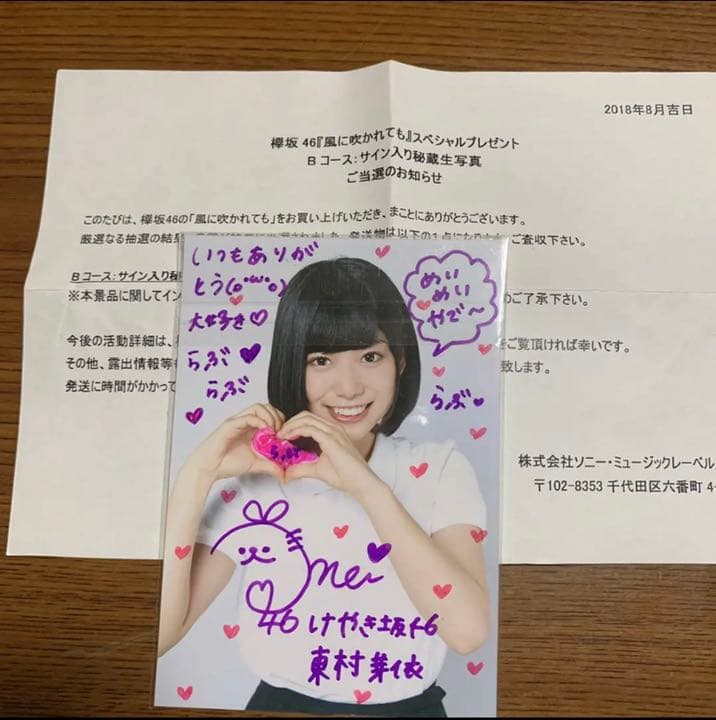 2018年8月吉日
欅坂46『風に吹かれても』スペシャルプレゼント
Bコース：サイン入り秘蔵生写真
ご当選のお知らせ
このたびは、欅坂46の「風に吹かれても」をお買い上げいただき、まことにありがとうございます。
厳選なる抽選の結果
発送物は以下の1点になります。ご査収下さい。
Bコース：サイン入り秘
※本景品に関してイン
めご了承下さい。
今後の活動詳細は、
をご覧頂ければ幸いです。
その他、露出情報等
致します。
発送に時間がかかって
株式会社ソニー・ミュージックレーベル
〒102-8353 千代田区六番町 4-
いつもありが
とう(o・ω・o)
大好き♡
らぶ♥
らぶ
めい
めい
やで～
らぶ♥
らぶ
mei
46 けやき坂46
東村芽依